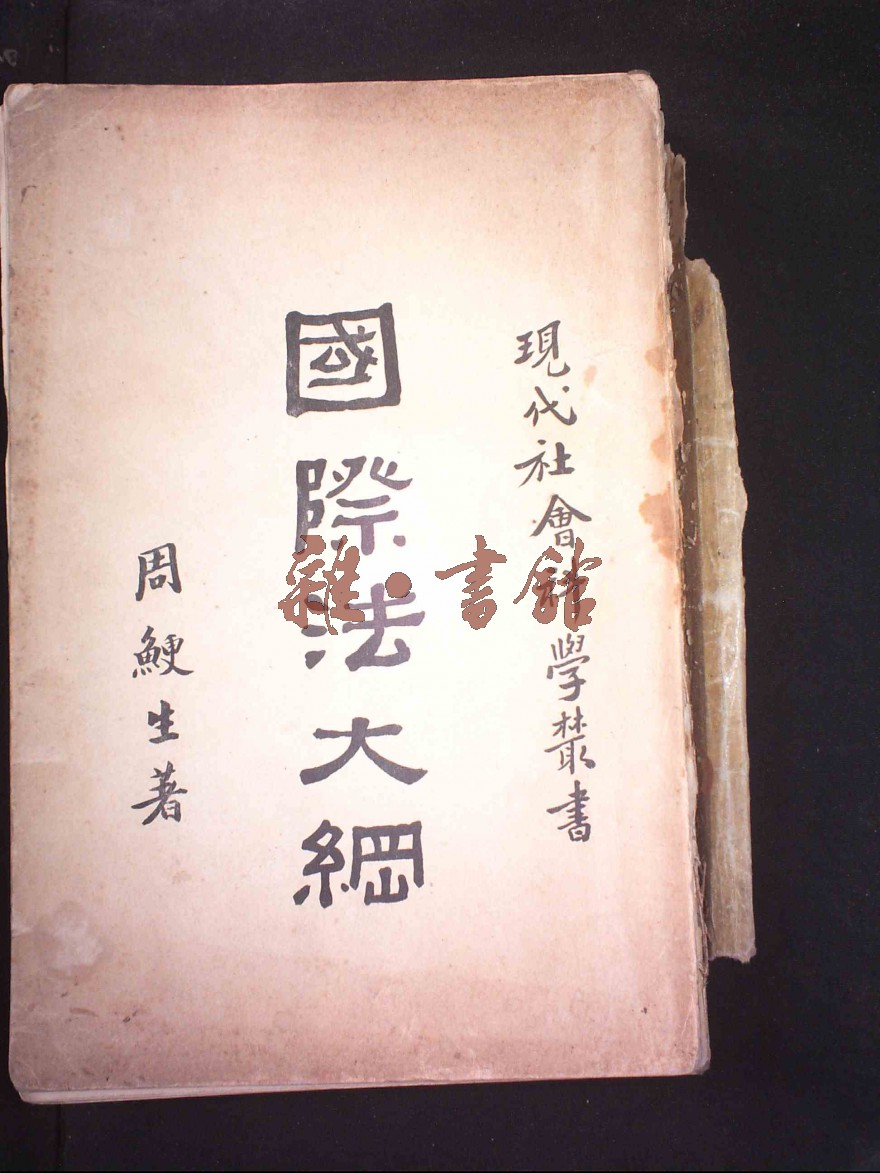 現代社會科學叢書
國際法大綱
周鯁生著
雜·書館